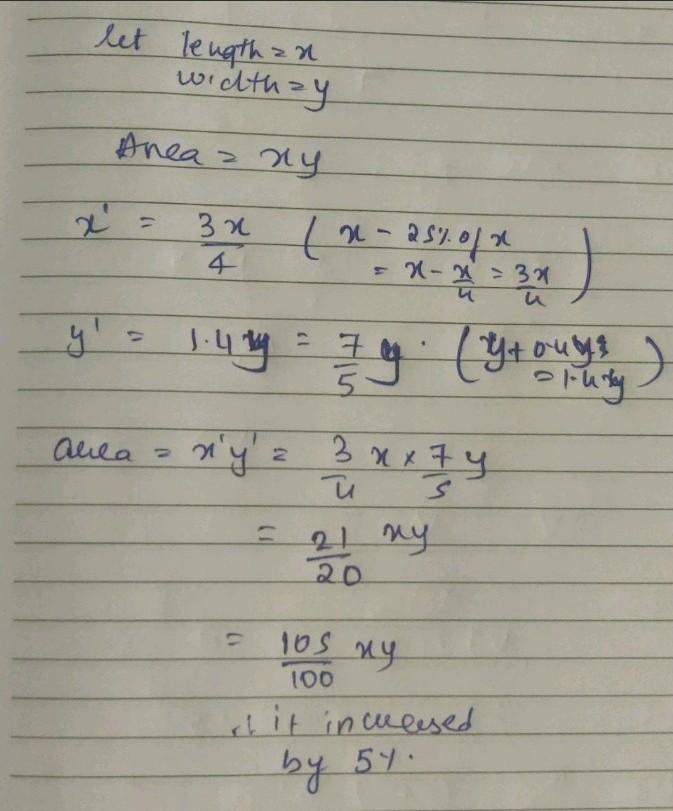 let length = x
width = y
Area = xy
x' = 3x/4 ( x - 25% of x
= x - x/4 = 3x/4 )
y' = 1.4y = 7/5 y . ( y + 0.4y
= 1.4y )
area = x'y' = 3/4 x × 7/5 y
= 21/20 xy
= 105/100 xy
it increased
by 5%.